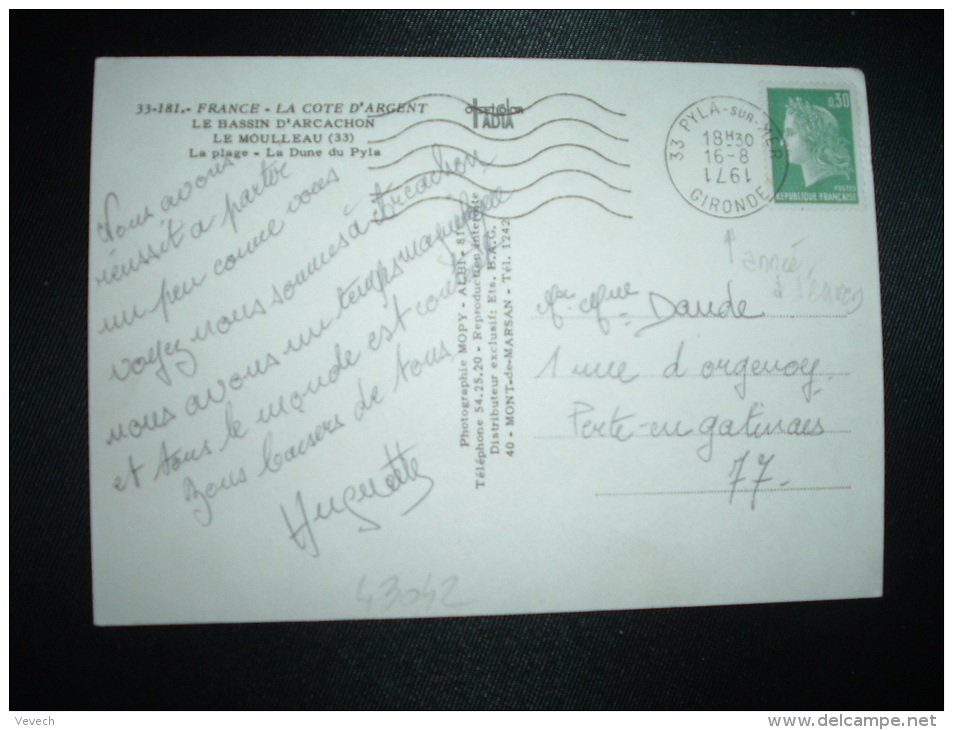 33-181.- FRANCE - LA COTE D'ARGENT
LE BASSIN D'ARCACHON
LE MOULLEAU (33)
La plage - La Dune du Pyla
Nous avons
réussit a partir
un peu comme vous
voyez nous sommes à Arcachon
nous avons un temps magnifique
et tous le monde est content
Bons baisers de tous
Huguette
43042
Photographie MOPY - ALBI - 81
Téléphone 54.25.20 - Reproduction interdite
Distributeur exclusif: Ets. B.A.G.
40 - MONT-de-MARSAN - Tél. 1242
33 PYLA-SUR-MER
18H30
16-8
1971
GIRONDE
0,30
POSTES
REPUBLIQUE FRANÇAISE
année
Mr Mme Daude
1 rue d'orgenoy
Perte-en gatinais
77.
Vevech
www.delcampe.net